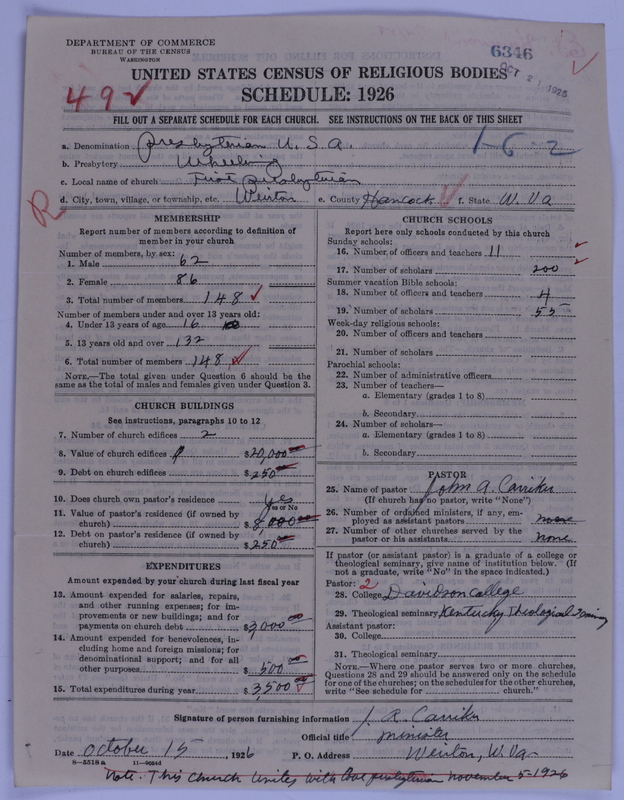 DEPARTMENT OF COMMERCE
BUREAU OF THE CENSUS
WASHINGTON
6346
OCT 21 1926
UNITED STATES CENSUS OF RELIGIOUS BODIES
SCHEDULE: 1926
49
FILL OUT A SEPARATE SCHEDULE FOR EACH CHURCH. SEE INSTRUCTIONS ON THE BACK OF THIS SHEET
1-62
a. Denomination Presbyterian U.S.A.
b. Presbytery Wheeling
c. Local name of church First Presbyterian
d. City, town, village, or township, etc. Weirton e. County Hancock f. State W. Va
R
MEMBERSHIP
Report number of members according to definition of member in your church
Number of members, by sex:
1. Male 62
2. Female 86
3. Total number of members 148
Number of members under and over 13 years old:
4. Under 13 years of age 16
5. 13 years old and over 132
6. Total number of members 148
NOTE.—The total given under Question 6 should be the same as the total of males and females given under Question 3.
CHURCH BUILDINGS
See instructions, paragraphs 10 to 12
7. Number of church edifices 2
8. Value of church edifices $20,000.00
9. Debt on church edifices $250.00
10. Does church own pastor's residence yes
Yes or No
11. Value of pastor's residence (if owned by church) $8,000.00
12. Debt on pastor's residence (if owned by church) $250.00
EXPENDITURES
Amount expended by your church during last fiscal year
13. Amount expended for salaries, repairs, and other running expenses; for improvements or new buildings; and for payments on church debt $3,000.00
14. Amount expended for benevolences, including home and foreign missions; for denominational support; and for all other purposes $500.00
15. Total expenditures during year $3,500.00
CHURCH SCHOOLS
Report here only schools conducted by this church
Sunday schools:
16. Number of officers and teachers 11
17. Number of scholars 200
Summer vacation Bible schools:
18. Number of officers and teachers 4
19. Number of scholars 55
Week-day religious schools:
20. Number of officers and teachers
21. Number of scholars
Parochial schools:
22. Number of administrative officers
23. Number of teachers—
a. Elementary (grades 1 to 8)
b. Secondary
24. Number of scholars—
a. Elementary (grades 1 to 8)
b. Secondary
PASTOR
25. Name of pastor John A. Carriker
(If church has no pastor, write "None")
26. Number of ordained ministers, if any, employed as assistant pastors none
27. Number of other churches served by the pastor or his assistants none
If pastor (or assistant pastor) is a graduate of a college or theological seminary, give name of institution below. (If not a graduate, write "No" in the space indicated.)
Pastor: 2
28. College Davidson College
29. Theological seminary Kentucky Theological Seminary
Assistant pastor:
30. College
31. Theological seminary
NOTE.—Where one pastor serves two or more churches, Questions 28 and 29 should be answered only on the schedule for one of the churches; on the schedules for the other churches, write "See schedule for church."
Signature of person furnishing information J. A. Carriker
Official title minister
Date October 15, 1926 P. O. Address Weirton, W. Va.
8—5518a 11—9654d
Note: This church unites with Cove Presbyterian November 5-1926